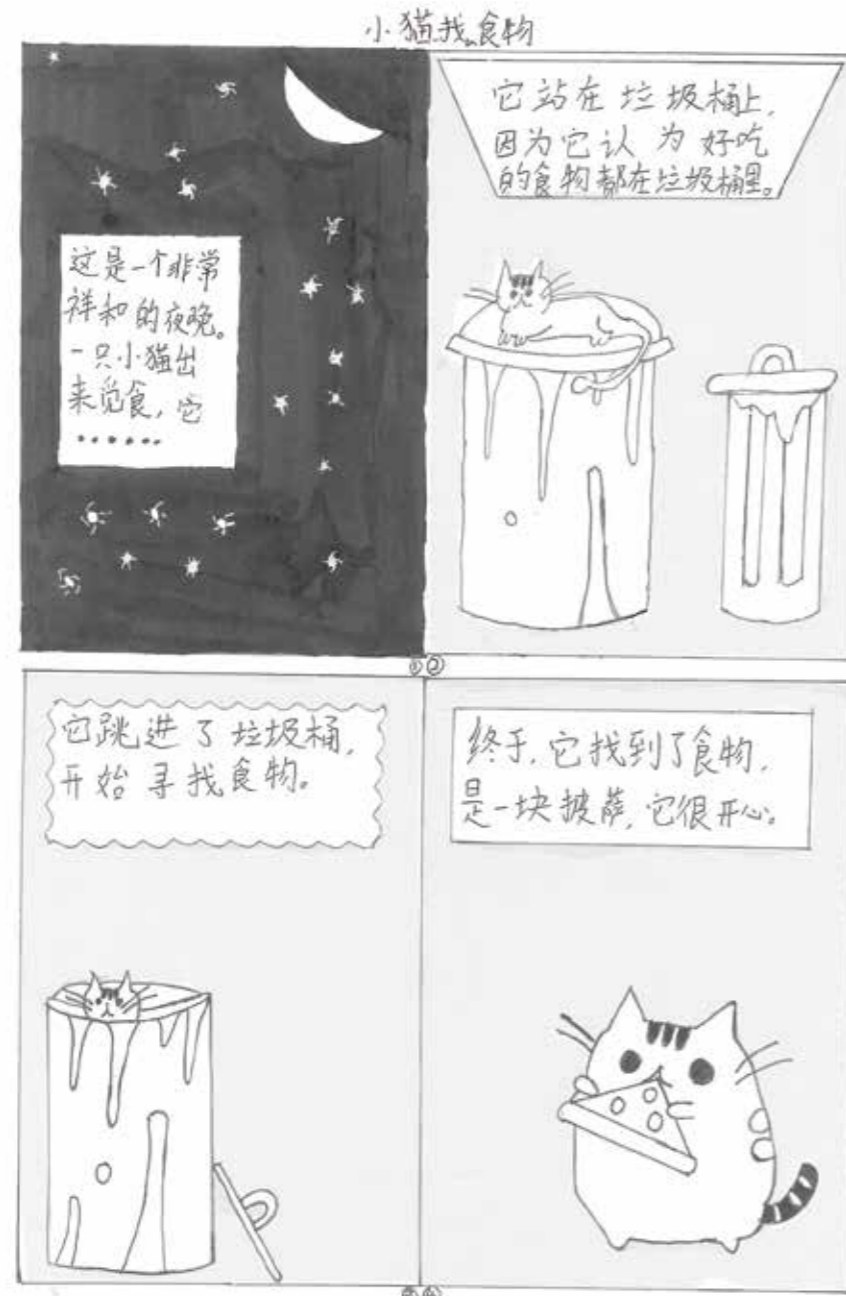 小猫找食物
这是一个非常
祥和的夜晚。
一只小猫出
来觅食，它
······
它站在垃圾桶上，
因为它认为好吃
的食物都在垃圾桶里。
①②
它跳进了垃圾桶，
开始寻找食物。
终于，它找到了食物，
是一块披萨，它很开心。
③④